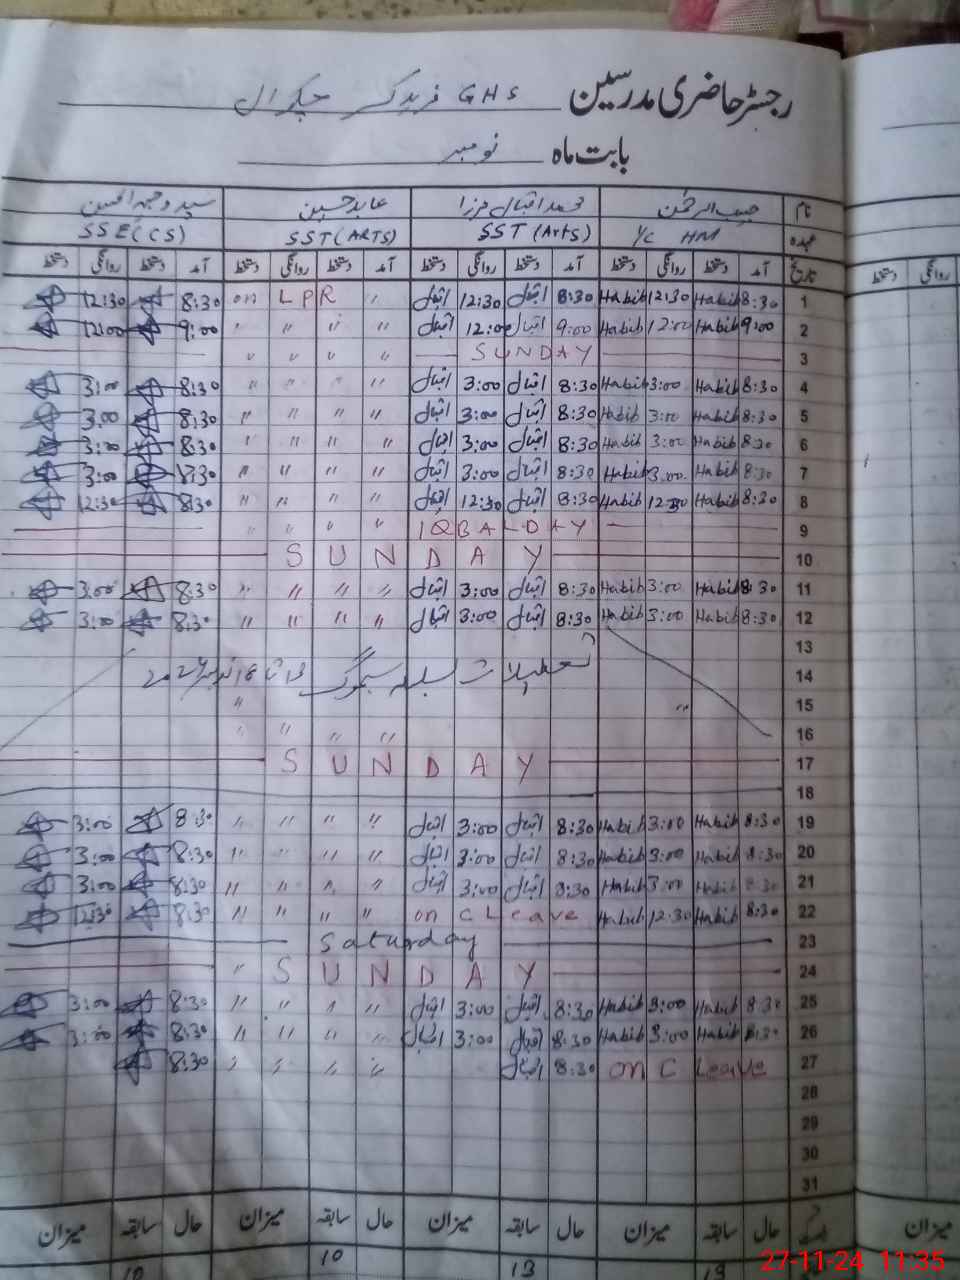 رجسٹر حاضری مدرسین GHS فرید کسر چکوال
بابت ماہ نومبر
نام حبیب الرحمٰن محمد اقبال مرزا عابد حسین سید وجیہہ الحسن
عہدہ I/C HM SST (Arts) SST (ARTS) SSE (CS)
تاریخ آمد دستخط روانگی دستخط آمد دستخط روانگی دستخط آمد دستخط روانگی دستخط آمد دستخط روانگی دستخط
1 8:30 Habib 12:30 Habib 8:30 اقبال 12:30 اقبال " on LPR 8:30 12:30
2 9:00 Habib 12:00 Habib 9:00 اقبال 12:00 اقبال " " " " 9:00 12:00
3 SUNDAY " " " "
4 8:30 Habib 3:00 Habib 8:30 اقبال 3:00 اقبال " " " " 8:30 3:00
5 8:30 Habib 3:00 Habib 8:30 اقبال 3:00 اقبال " " " " 8:30 3:00
6 8:30 Habib 3:00 Habib 8:30 اقبال 3:00 اقبال " " " " 8:30 3:00
7 8:30 Habib 3:00 Habib 8:30 اقبال 3:00 اقبال " " " " 8:30 3:00
8 8:30 Habib 12:30 Habib 8:30 اقبال 12:30 اقبال " " " " 8:30 12:30
9 IQBAL DAY " " " "
10 SUNDAY
11 8:30 Habib 3:00 Habib 8:30 اقبال 3:00 اقبال " " " " 8:30 3:00
12 8:30 Habib 3:00 Habib 8:30 اقبال 3:00 اقبال " " " " 8:30 3:00
13
14 تعطیلات بسلسلہ سموگ 13 تا 16 نومبر 2024
15 " "
16 " " " "
17 SUNDAY
18
19 8:30 Habib 3:00 Habib 8:30 اقبال 3:00 اقبال " " " " 8:30 3:00
20 8:30 Habib 3:00 Habib 8:30 اقبال 3:00 اقبال " " " " 8:30 3:00
21 8:30 Habib 3:00 Habib 8:30 اقبال 3:00 اقبال " " " " 8:30 3:00
22 8:30 Habib 12:30 Habib on C Leave " " " " 8:30 12:30
23 Saturday
24 SUNDAY "
25 8:30 Habib 3:00 Habib 8:30 اقبال 3:00 اقبال " " " " 8:30 3:00
26 8:30 Habib 3:00 Habib 8:30 اقبال 3:00 اقبال " " " " 8:30 3:00
27 on C Leave 8:30 اقبال " " " " 8:30
28
29
30
31
حال سابقہ میزان حال سابقہ میزان حال سابقہ میزان حال سابقہ میزان
13 10 10
دستخط روانگی
میزان
27-11-24 11:35